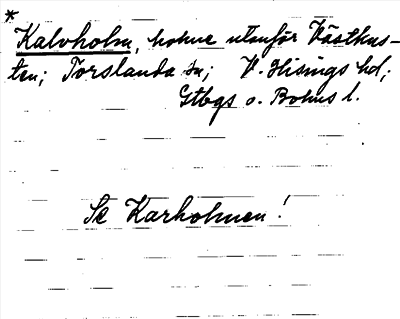 *
Kalvholm, holme utanför Västkus-
ten; Torslanda sn; V. Hisings hd;
Gtbgs o. Bohus l.
Se Karholmen!